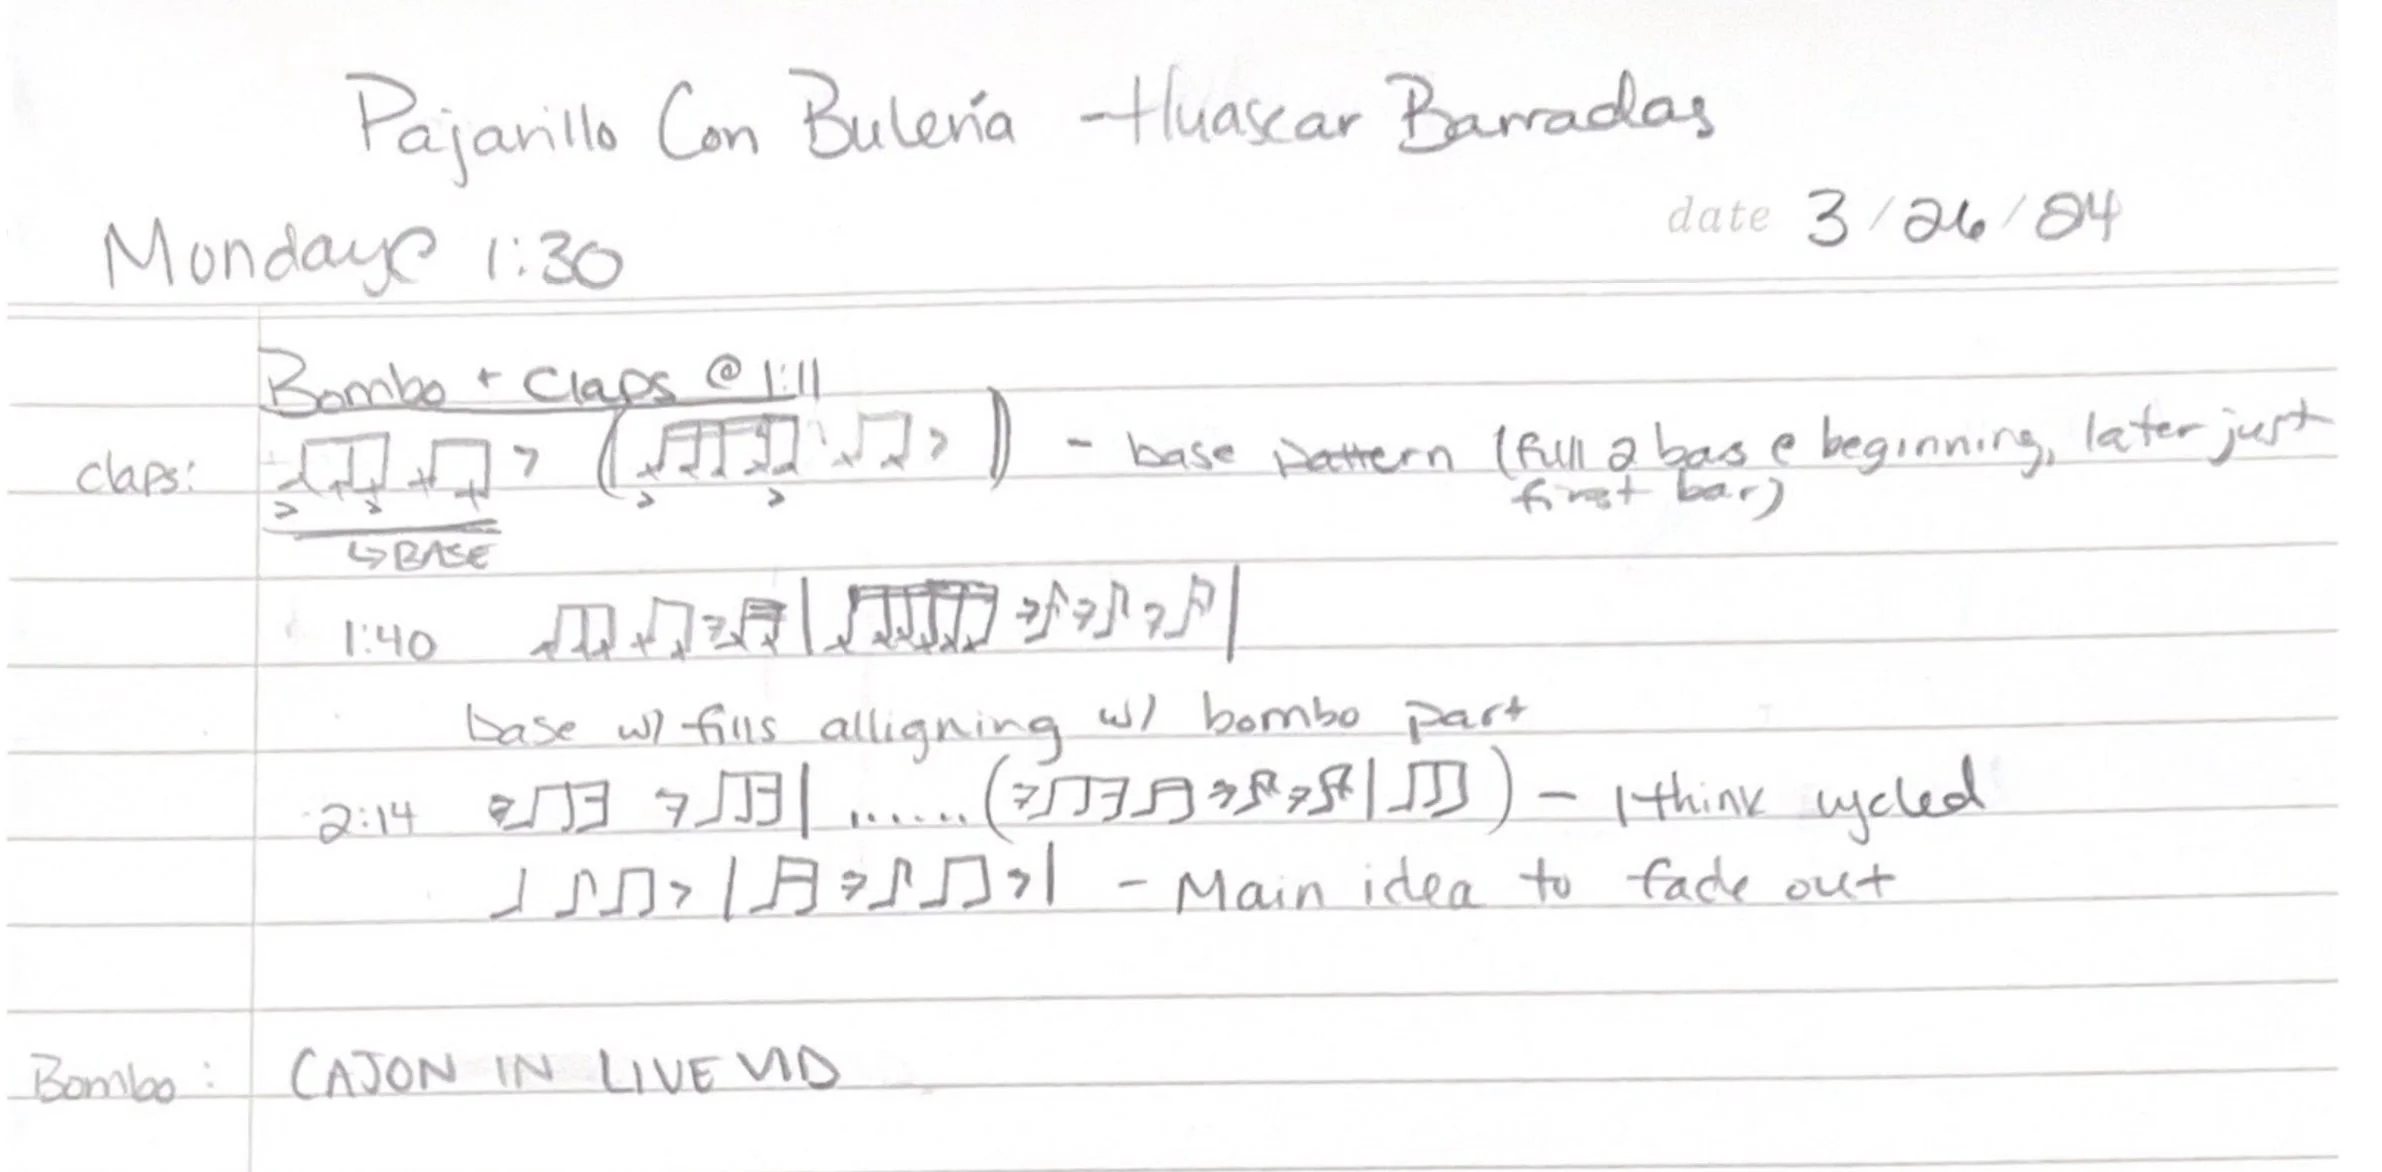 Pajarillo Con Bulería - Huascar Barradas
date 3/26/24
Monday @ 1:30
Bombo + Claps @ 1:11
claps: - base pattern (full 2 bas @ beginning, later just
first bar)
↳ BASE
1:40
base w/ fills alligning w/ bombo part
2:14 ...... - I think cycled
- Main idea to fade out
Bombo: CAJON IN LIVE VID